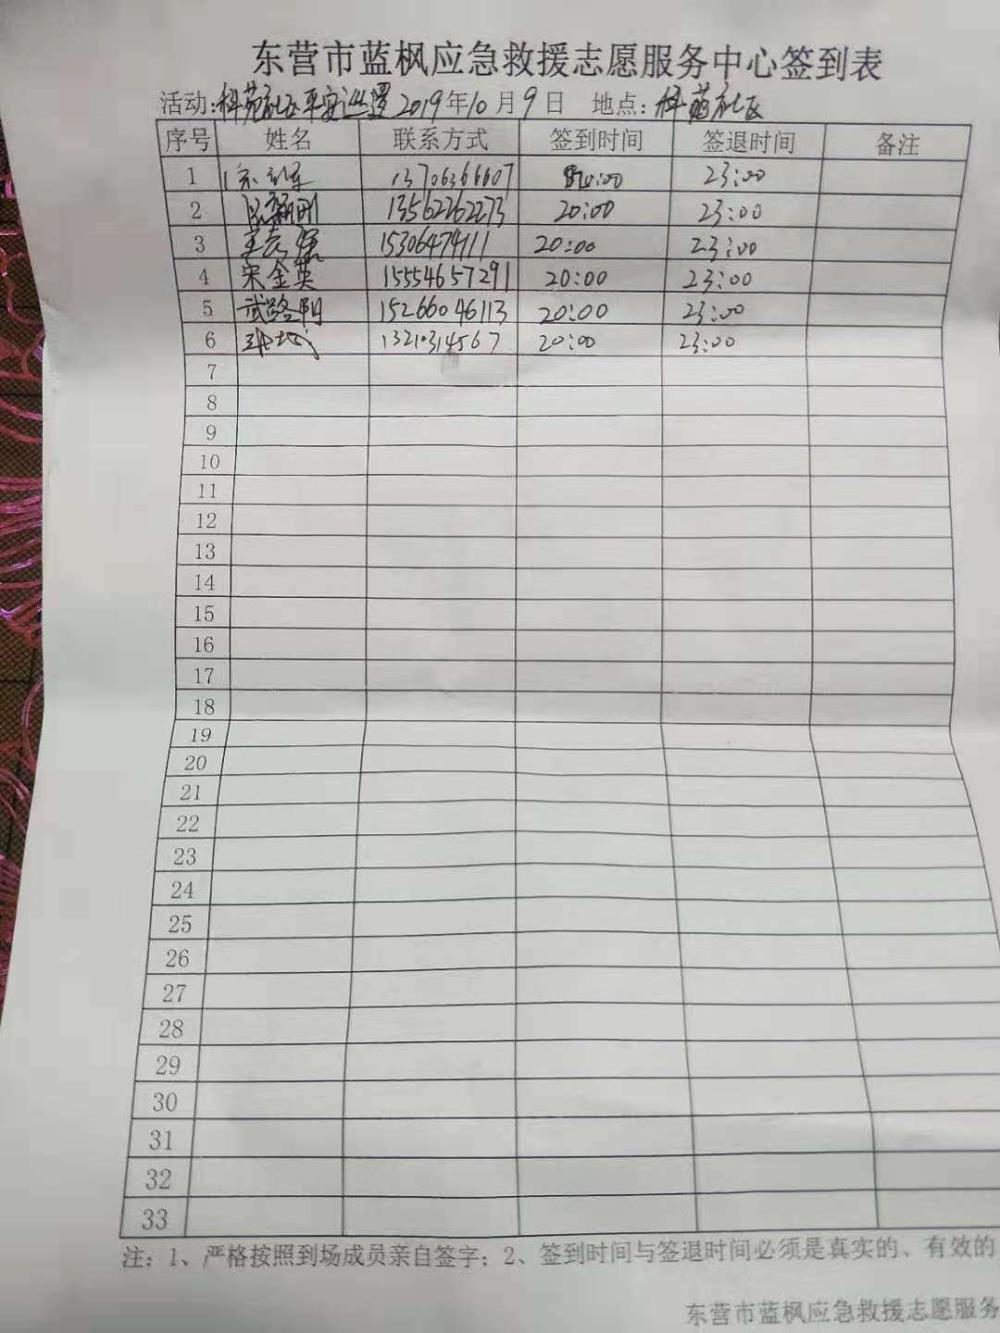 东营市蓝枫应急救援志愿服务中心签到表
活动:科苑社区平安巡逻 2019年10月9日 地点:科苑社区
序号 姓名 联系方式 签到时间 签退时间 备注
1 13706366607 20:00 23:00
2 13562262273 20:00 23:00
3 15306474111 20:00 23:00
4 宋金英 15554657291 20:00 23:00
5 武路阳 15266046113 20:00 23:00
6 13210314567 20:00 23:00
7
8
9
10
11
12
13
14
15
16
17
18
19
20
21
22
23
24
25
26
27
28
29
30
31
32
33
注:1、严格按照到场成员亲自签字;2、签到时间与签退时间必须是真实的、有效的
东营市蓝枫应急救援志愿服务